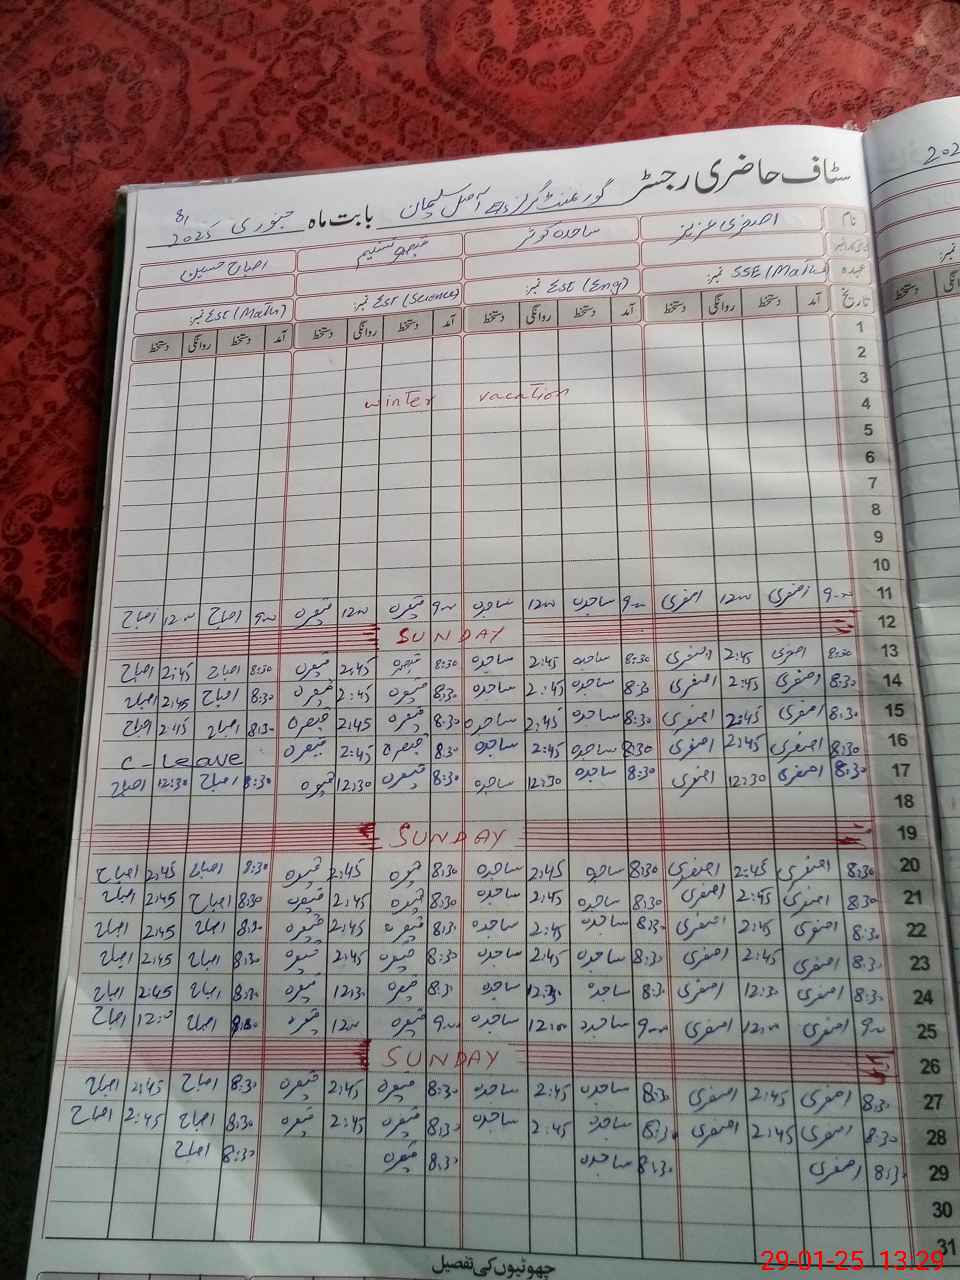 سٹاف حاضری رجسٹر گورنمنٹ گرلز بابت ماہ جنوری 2025
نام اصغری عزیز ساجدہ کوثر اصباح حسین
عہدہ SSE (Math) نمبر: EST (Eng) نمبر: EST (Science) نمبر: EST (Math) نمبر:
تاریخ آمد دستخط روانگی دستخط آمد دستخط روانگی دستخط آمد دستخط روانگی دستخط آمد دستخط روانگی دستخط
1
2
3
winter vacation
4
5
6
7
8
9
10
11 9-00 اصغری 1200 اصغری 9-00 ساجدہ 1200 ساجدہ 9-00 1200 9-00 اصباح 1200 اصباح
12 SUNDAY
13 8:30 اصغری 2:45 اصغری 8:30 ساجدہ 2:45 ساجدہ 8:30 2:45 8:30 اصباح 2:45 اصباح
14 8:30 اصغری 2:45 اصغری 8:30 ساجدہ 2:45 ساجدہ 8:30 2:45 8:30 اصباح 2:45 اصباح
15 8:30 اصغری 2:45 اصغری 8:30 ساجدہ 2:45 ساجدہ 8:30 2:45 8:30 اصباح 2:45 اصباح
16 8:30 اصغری 2:45 اصغری 8:30 ساجدہ 2:45 ساجدہ 8:30 2:45 C-Leave
17 8:30 اصغری 12:30 اصغری 8:30 ساجدہ 12:30 ساجدہ 8:30 12:30 8:30 اصباح 12:30 اصباح
18
19 SUNDAY
20 8:30 اصغری 2:45 اصغری 8:30 ساجدہ 2:45 ساجدہ 8:30 2:45 8:30 اصباح 2:45 اصباح
21 8:30 اصغری 2:45 اصغری 8:30 ساجدہ 2:45 ساجدہ 8:30 2:45 8:30 اصباح 2:45 اصباح
22 8:30 اصغری 2:45 اصغری 8:30 ساجدہ 2:45 ساجدہ 8:30 2:45 8:30 اصباح 2:45 اصباح
23 8:30 اصغری 2:45 اصغری 8:30 ساجدہ 2:45 ساجدہ 8:30 2:45 8:30 اصباح 2:45 اصباح
24 8:30 اصغری 12:30 اصغری 8:30 ساجدہ 12:30 ساجدہ 8:30 12:30 8:30 اصباح 2:45 اصباح
25 9-00 اصغری 12:00 اصغری 9-00 ساجدہ 12:00 ساجدہ 9-00 1200 اصباح 12:00 اصباح
26 SUNDAY
27 8:30 اصغری 2:45 اصغری 8:30 ساجدہ 2:45 ساجدہ 8:30 2:45 8:30 اصباح 2:45 اصباح
28 8:30 اصغری 2:45 اصغری 8:30 ساجدہ 2:45 ساجدہ 8:30 2:45 8:30 اصباح 2:45 اصباح
29 8:30 اصغری 8:30 ساجدہ 8:30 8:30 اصباح
30
31
چھوٹیوں کی تفصیل
29-01-25 13:29